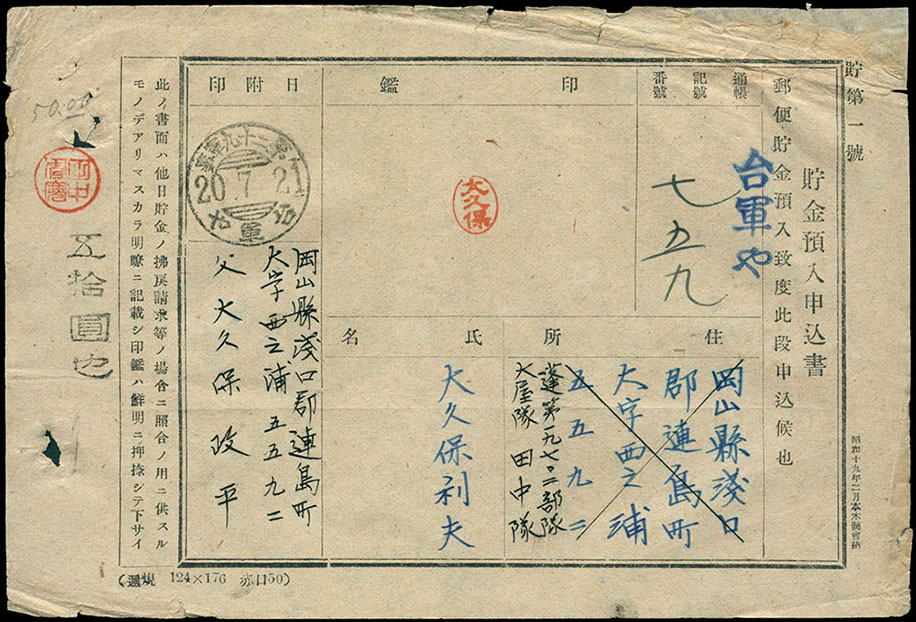 貯第一號
貯金預入申込書
郵便貯金預入致度此段申込候也
昭和十九年二月本木商會納
通帳
記號
番號
台軍や
七五九
印
鑑
大久保
住
所
岡山縣淺口
郡連島町
大字西之浦
五五九二
蓬第一九七〇二部隊
大屋隊田中隊
氏
名
大久保利夫
日附印
20 7 21
岡山縣淺口郡連島町
大字西之浦五五九二
父大久保政平
此ノ書面ハ他日貯金ノ拂戻請求等ノ場合ニ照合ノ用ニ供スル
モノデアリマスカラ明瞭ニ記載シ印鑑ハ鮮明ニ押捺シテ下サイ
50.00
五拾圓也
(遞規 124×176 亦日50)